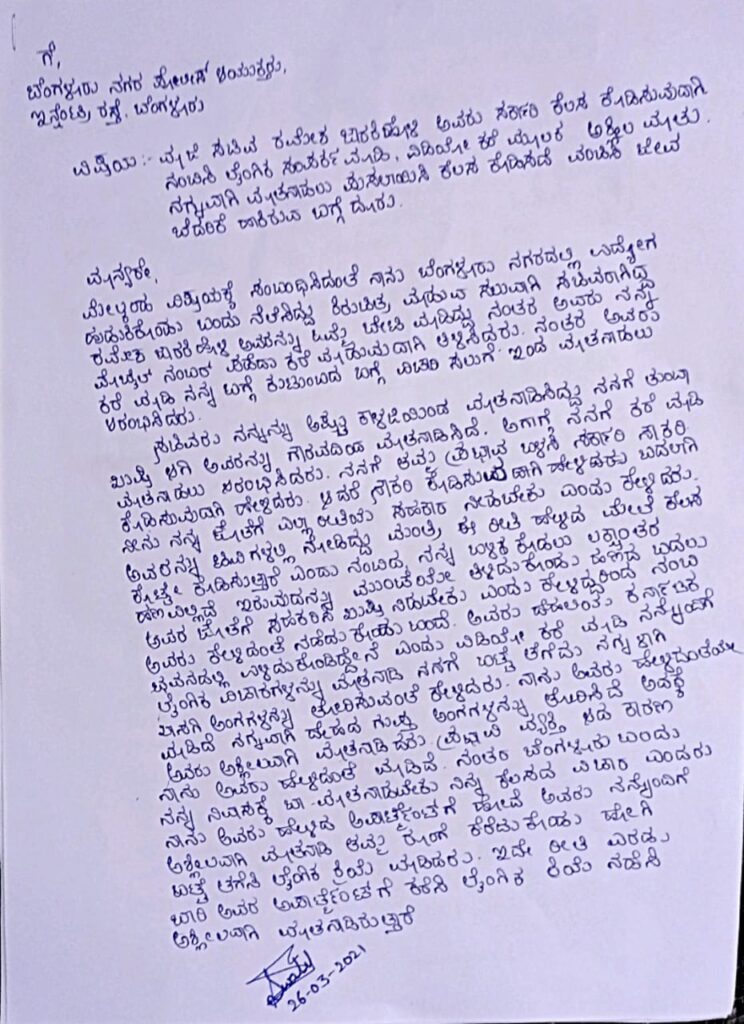 ಗೆ,
ಬೆಂಗಳೂರು ನಗರ ಪೋಲೀಸ್ ಆಯುಕ್ತರು,
ಇನ್ಫೆಂಟ್ರಿ ರಸ್ತೆ, ಬೆಂಗಳೂರು
ವಿಷಯ :- ಮಾಜಿ ಸಚಿವ ರಮೇಶ ಜಾರಕಿಹೊಳಿ ಅವರು ಸರ್ಕಾರಿ ಕೆಲಸ ಕೊಡಿಸುವುದಾಗಿ
ನಂಬಿಸಿ ಲೈಂಗಿಕ ಸಂಪರ್ಕ ಮಾಡಿ, ವಿಡಿಯೋ ಕರೆ ಮೂಲಕ ಅಶ್ಲೀಲ ಮಾತು.
ನಗ್ನವಾಗಿ ಮಾತನಾಡಲು ಪುಸಲಾಯಿಸಿ ಕೆಲಸ ಕೊಡಿಸದೆ ವಂಚಿಸಿ ಜೀವ
ಬೆದರಿಕೆ ಹಾಕಿರುವ ಬಗ್ಗೆ ದೂರು.
ಮಾನ್ಯರೇ,
ಮೇಲ್ಕಂಡ ವಿಷಯಕ್ಕೆ ಸಂಬಂಧಿಸಿದಂತೆ ನಾನು ಬೆಂಗಳೂರು ನಗರದಲ್ಲಿ ಉದ್ಯೋಗ
ಹುಡುಕಿಕೊಂಡು ಬಂದು ನೆಲೆಸಿದ್ದು ಕಿರುಚಿತ್ರ ಮಾಡುವ ಸಲುವಾಗಿ ಸಚಿವರಾಗಿದ್ದ
ರಮೇಶ ಜಾರಕಿಹೊಳಿ ಅವರನ್ನು ಒಮ್ಮೆ ಬೇಟಿ ಮಾಡಿದ್ದು ನಂತರ ಅವರು ನನ್ನ
ಮೊಬೈಲ್ ನಂಬರ್ ಪಡೆದು ಕರೆ ಮಾಡುವುದಾಗಿ ತಿಳಿಸಿದ್ದರು. ನಂತರ ಅವರು
ಕರೆ ಮಾಡಿ ನನ್ನ ಬಗ್ಗೆ ಕುಟುಂಬದ ಬಗ್ಗೆ ವಿಚಾರಿ ಸಲುಗೆ ಇಂದ ಮಾತನಾಡಲು
ಆರಂಭಿಸಿದರು.
ಸಚಿವರು ನನ್ನನ್ನು ಅಷ್ಟು ಕಾಳಜಿಯಿಂದ ಮಾತನಾಡಿಸಿದ್ದು ನನಗೆ ತುಂಬಾ
ಖುಷಿ ಆಗಿ ಅವರನ್ನು ಗೌರವದಿಂದ ಮಾತನಾಡಿಸಿದೆ. ಆಗಾಗ್ಗೆ ನನಗೆ ಕರೆ ಮಾಡಿ
ಮಾತನಾಡಲು ಆರಂಭಿಸಿದರು. ನನಗೆ ತಮ್ಮ ಪ್ರಭಾವ ಬಳಸಿ ಸರ್ಕಾರಿ ನೌಕರಿ
ಕೊಡಿಸುವುದಾಗಿ ಹೇಳಿದರು. ಆದರೆ ನೌಕರಿ ಕೊಡಿಸುವುದಾಗಿ ಹೇಳಿದಕ್ಕು ಬದಲಾಗಿ
ನೀನು ನನ್ನ ಜೊತೆಗೆ ಎಲ್ಲಾ ರೀತಿಯ ಸಹಕಾರ ನೀಡಬೇಕು ಎಂದು ಕೇಳಿದರು.
ಅವರನ್ನು ಟಿವಿಗಳಲ್ಲಿ ನೋಡಿದ್ದು ಮಂತ್ರಿ ಈ ರೀತಿ ಹೇಳಿದ ಮೇಲೆ ಕೆಲಸ
ಕೊಟ್ಟೇ ಕೊಡಿಸುತ್ತಾರೆ ಎಂದು ನಂಬಿದ್ದ, ನನ್ನ ಬಳಿ ಕೊಡಲು ಲಕ್ಷಾಂತರ
ಹಣವಿಲ್ಲದೆ ಇರುವುದನ್ನು ಮುಂಚೆಯೇ ತಿಳಿದುಕೊಂಡು ಹಣದ ಬದಲು
ಅವರ ಜೊತೆಗೆ ಸಹಕರಿಸಿ ಖುಷಿ ನೀಡಬೇಕು ಎಂದು ಕೇಳಿದ್ದರಿಂದ ನಂಬಿ
ಅವರು ಕೇಳಿದಂತೆ ನಡೆದು ಕೊಂಡು ಬಂದೆ. ಅವರು ಕರ್ನಾಟಕ
ಭವನದಲ್ಲಿ ಉಳಿದುಕೊಂಡಿದ್ದೇನೆ ಎಂದು ವಿಡಿಯೋ ಕರೆ ಮಾಡಿ ನನ್ನೊಂದಿಗೆ
ಲೈಂಗಿಕ ವಿಚಾರಗಳನ್ನು ಮಾತನಾಡಿ ನನಗೆ ಬಟ್ಟೆ ತೆಗೆದು ನಗ್ನವಾಗಿ
ಖಾಸಗಿ ಅಂಗಗಳನ್ನು ತೋರಿಸುವಂತೆ ಕೇಳಿದರು. ನಾನು ಅವರು ಹೇಳಿದಂತೆಯೇ
ಮಾಡಿದೆ ನಗ್ನವಾಗಿ ದೇಹದ ಗುಪ್ತ ಅಂಗಗಳನ್ನು ತೋರಿಸಿದೆ ಅದಕ್ಕೆ
ಅವರು ಅಶ್ಲೀಲವಾಗಿ ಮಾತನಾಡಿದರು ಪ್ರಭಾವಿ ವ್ಯಕ್ತಿ ಆದ ಕಾರಣ
ನಾನು ಅವರು ಹೇಳಿದಂತೆ ಮಾಡಿದೆ. ನಂತರ ಬೆಂಗಳೂರು ಬಂದು
ನನ್ನ ನಿವಾಸಕ್ಕೆ ಬಾ ಮಾತನಾಡಬೇಕು ನಿನ್ನ ಕೆಲಸದ ವಿಚಾರ ಎಂದರು
ನಾನು ಅವರು ಹೇಳಿದ ಅಪಾರ್ಟ್ಮೆಂಟ್‌ಗೆ ಹೋದೆ ಅವರು ನನ್ನೊಂದಿಗೆ
ಅಶ್ಲೀಲವಾಗಿ ಮಾತನಾಡಿ ತಮ್ಮ ರೂಂಗೆ ಕರೆದುಕೊಂಡು ಹೋಗಿ
ಬಟ್ಟೆ ತೆಗೆಸಿ ಲೈಂಗಿಕ ಕ್ರಿಯೆ ಮಾಡಿದರು. ಇದೇ ರೀತಿ ಎರಡು
ಬಾರಿ ಅವರ ಅಪಾರ್ಟ್ಮೆಂಟ್‌ಗೆ ಕರೆಸಿ ಲೈಂಗಿಕ ಕ್ರಿಯೆ ನಡೆಸಿ
ಅಶ್ಲೀಲವಾಗಿ ಮಾತನಾಡಿರುತ್ತಾರೆ
26-03-2021